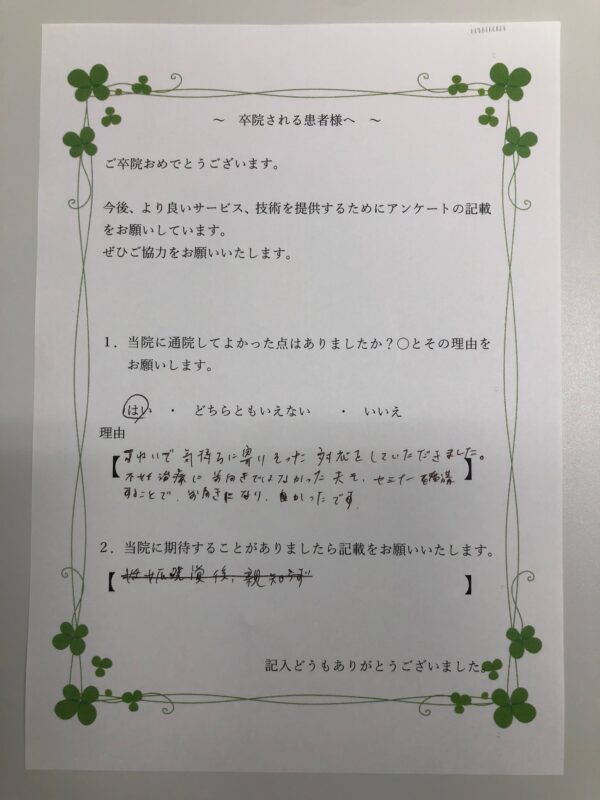 ～ 卒院される患者様へ ～
ご卒院おめでとうございます。
今後、より良いサービス、技術を提供するためにアンケートの記載
をお願いしています。
ぜひご協力をお願いいたします。
１．当院に通院してよかった点はありましたか？〇とその理由を
お願いします。
はい ・ どちらともいえない ・ いいえ
理由
【きれいで気持ちに寄りそった対応をしていただきました。
不妊治療に前向きではなかった夫も、セミナー 聴講】
することで、前向きになり、良かったです
２．当院に期待することがありましたら記載をお願いいたします。
【 後、親知らず 】
記入どうもありがとうございました。